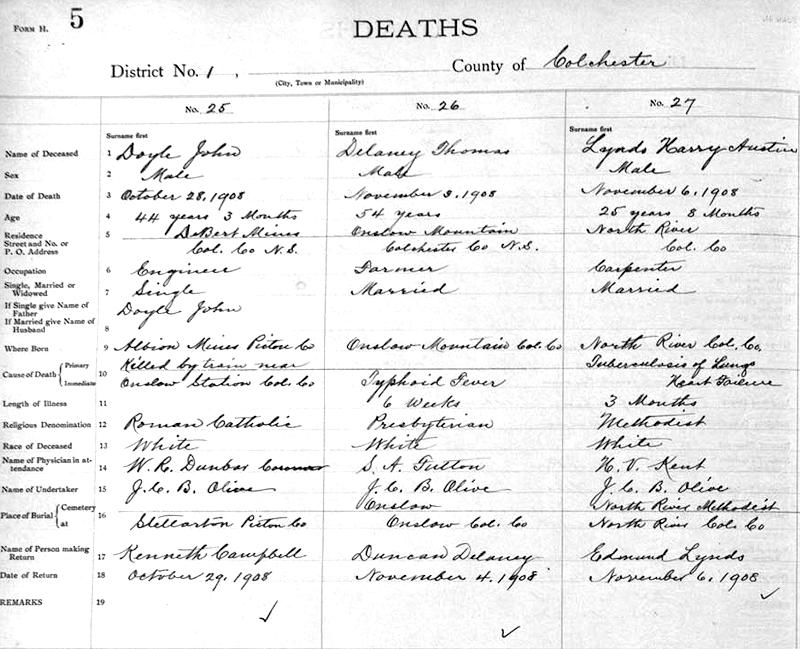 FORM H. 5
DEATHS
District No. 1, County of Colchester
(City, Town or Municipality)
No. 25 No. 26 No. 27
Surname first Surname first Surname first
Name of Deceased 1 Doyle John Delaney Thomas Lynds Harry Austin
Sex 2 Male Male Male
Date of Death 3 October 28, 1908 November 3, 1908 November 6, 1908
Age 4 44 years 3 Months 54 years 25 years 8 Months
Residence 5 DeBert Mines Onslow Mountain North River
Street and No. or P. O. Address Col. Co N.S. Colchester Co N.S. Col. Co
Occupation 6 Engineer Farmer Carpenter
Single, Married or Widowed 7 Single Married Married
If Single give Name of Father Doyle John
If Married give Name of Husband 8
Where Born 9 Albion Mines Pictou Co Onslow Mountain Col. Co North River Col. Co.
Cause of Death Primary 10 Killed by train near Tuberculosis of Lungs
Immediate Onslow Station Col. Co Typhoid Fever Heart Failure
Length of Illness 11 6 Weeks 3 Months
Religious Denomination 12 Roman Catholic Presbyterian Methodist
Race of Deceased 13 White White White
Name of Physician in attendance 14 W. R. Dunbar Coroner S. A. Fulton H. V. Kent
Name of Undertaker 15 J. C. B. Olive J. C. B. Olive J. C. B. Olive
Place of Burial Cemetery 16 Onslow North River Methodist
at Stellarton Pictou Co Onslow Col. Co North River Col. Co
Name of Person making Return 17 Kenneth Campbell Duncan Delaney Edmund Lynds
Date of Return 18 October 29, 1908 November 4, 1908 November 6, 1908
REMARKS 19